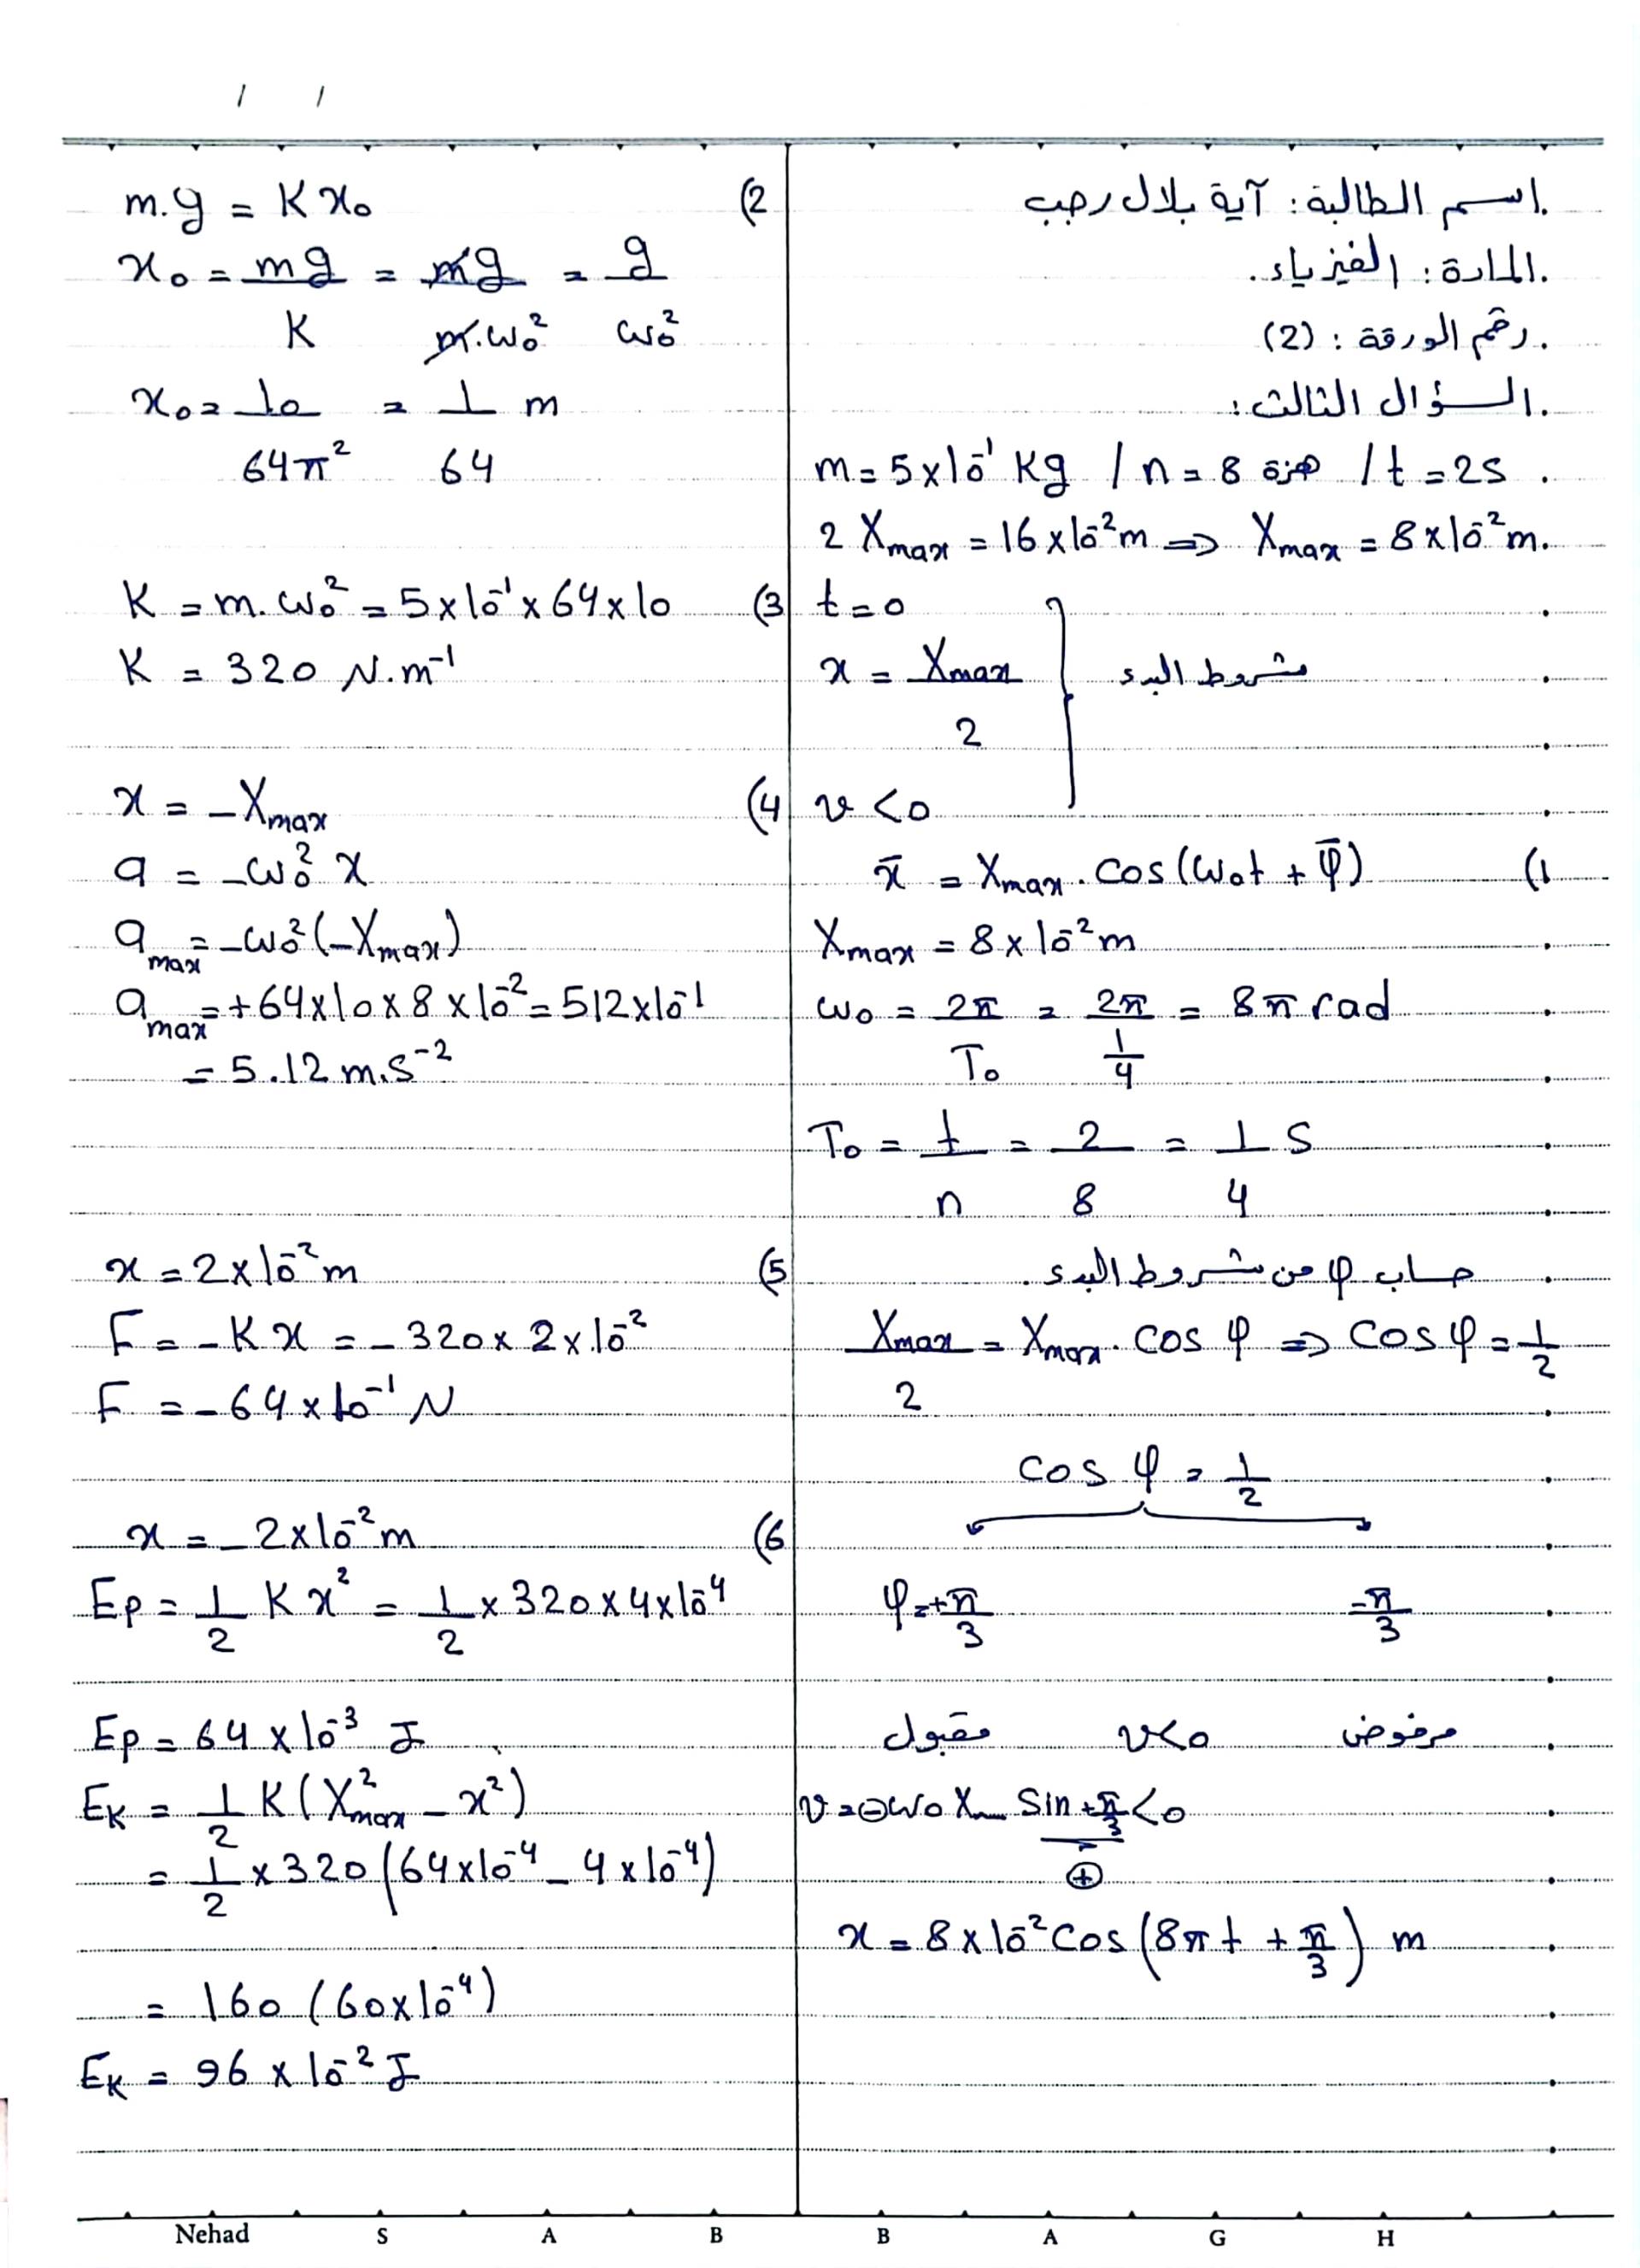 اسم الطالبة: آية بلال رجب
المادة: الفيزياء.
رقم الورقة: (2)
السؤال الثالث:
m = 5×10⁻¹ Kg / n = 8 هزة / t = 2s
2 Xmax = 16×10⁻² m ⇒ Xmax = 8×10⁻² m.
t = 0
x = Xmax/2 شروط البدء
v < 0
(1 x̄ = Xmax . cos(ω₀t + φ̄)
Xmax = 8×10⁻² m
ω₀ = 2π/T₀ = 2π/(1/4) = 8π rad
T₀ = t/n = 2/8 = 1/4 s
حساب φ من شروط البدء.
Xmax/2 = Xmax . cos φ ⇒ cos φ = 1/2
cos φ = 1/2
φ = +π/3 -π/3
مقبول v<0 مرفوض
v = ⊖ω₀ Xm sin +π/3 < 0
⊕
x = 8×10⁻² cos(8πt + π/3) m
(2 m.g = K x₀
x₀ = mg/K = mg/m.ω₀² = g/ω₀²
x₀ = 10/64π² = 1/64 m
(3 K = m.ω₀² = 5×10⁻¹×64×10
K = 320 N.m⁻¹
(4 x = -Xmax
a = -ω₀² x
a max = -ω₀²(-Xmax)
a max = +64×10×8×10⁻² = 512×10⁻¹
= 5.12 m.s⁻²
(5 x = 2×10⁻² m
F = -K x = -320×2×10⁻²
F = -64×10⁻¹ N
(6 x = -2×10⁻² m
Ep = 1/2 K x² = 1/2 × 320×4×10⁻⁴
Ep = 64×10⁻³ J
EK = 1/2 K(X²max - x²)
= 1/2 × 320(64×10⁻⁴ - 4×10⁻⁴)
= 160(60×10⁻⁴)
EK = 96×10⁻² J
Nehad S A B B A G H